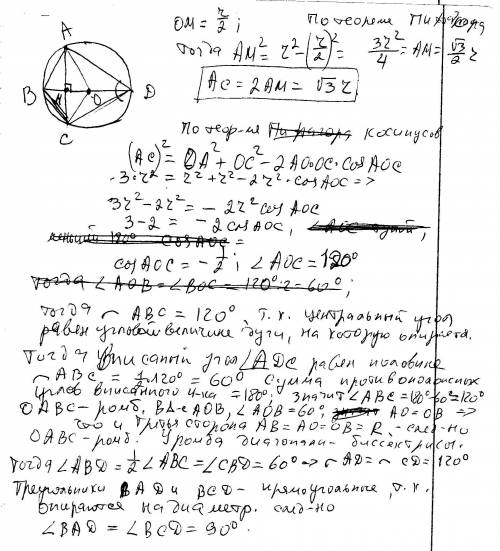 A
B M O D
C
OM = r/2 ; По теореме Пифагора
тогда AM² = r² - (r/2)² = 3r²/4 = AM = √3/2 r
AC = 2AM = √3 r.
По теореме Пифагора косинусов
(AC)² = OA² + OC² - 2AO·OC·cosAOC
3·r² = r² + r² - 2r²·cosAOC =>
3r² - 2r² = - 2r² cosAOC
3-2 = -2cosAOC,
cosAOC =
cosAOC = -1/2 ; ∠AOC = 120°
Тогда ∠AOB = ∠BOC = 120°:2 = 60° ;
Тогда ◠ ABC = 120°, т.к. центральный угол
равен угловой величине дуги, на которую опирается.
Тогда вписаный угол ∠ADC равен половине
◠ ABC = 1/2·120° = 60° Сумма противоположных
углов вписанного 4-ка = 180°; значит ∠ABC = 180°-60°=120°
OABC - ромб, В Δ-е AOB, ∠AOB = 60°, AO = OB =>
что и третья сторона AB = AO = OB = R. - след-но
OABC - ромб. У ромба диагонали - биссектрисы.
Тогда ∠ABD = 1/2 ∠ABC = ∠CBD = 60° => ◠ AD = ◠ CD = 120°
Треугольники BAD и BCD - прямоугольные, т.к.
опираются на диаметр. след-но
∠BAD = ∠BCD = 90°.